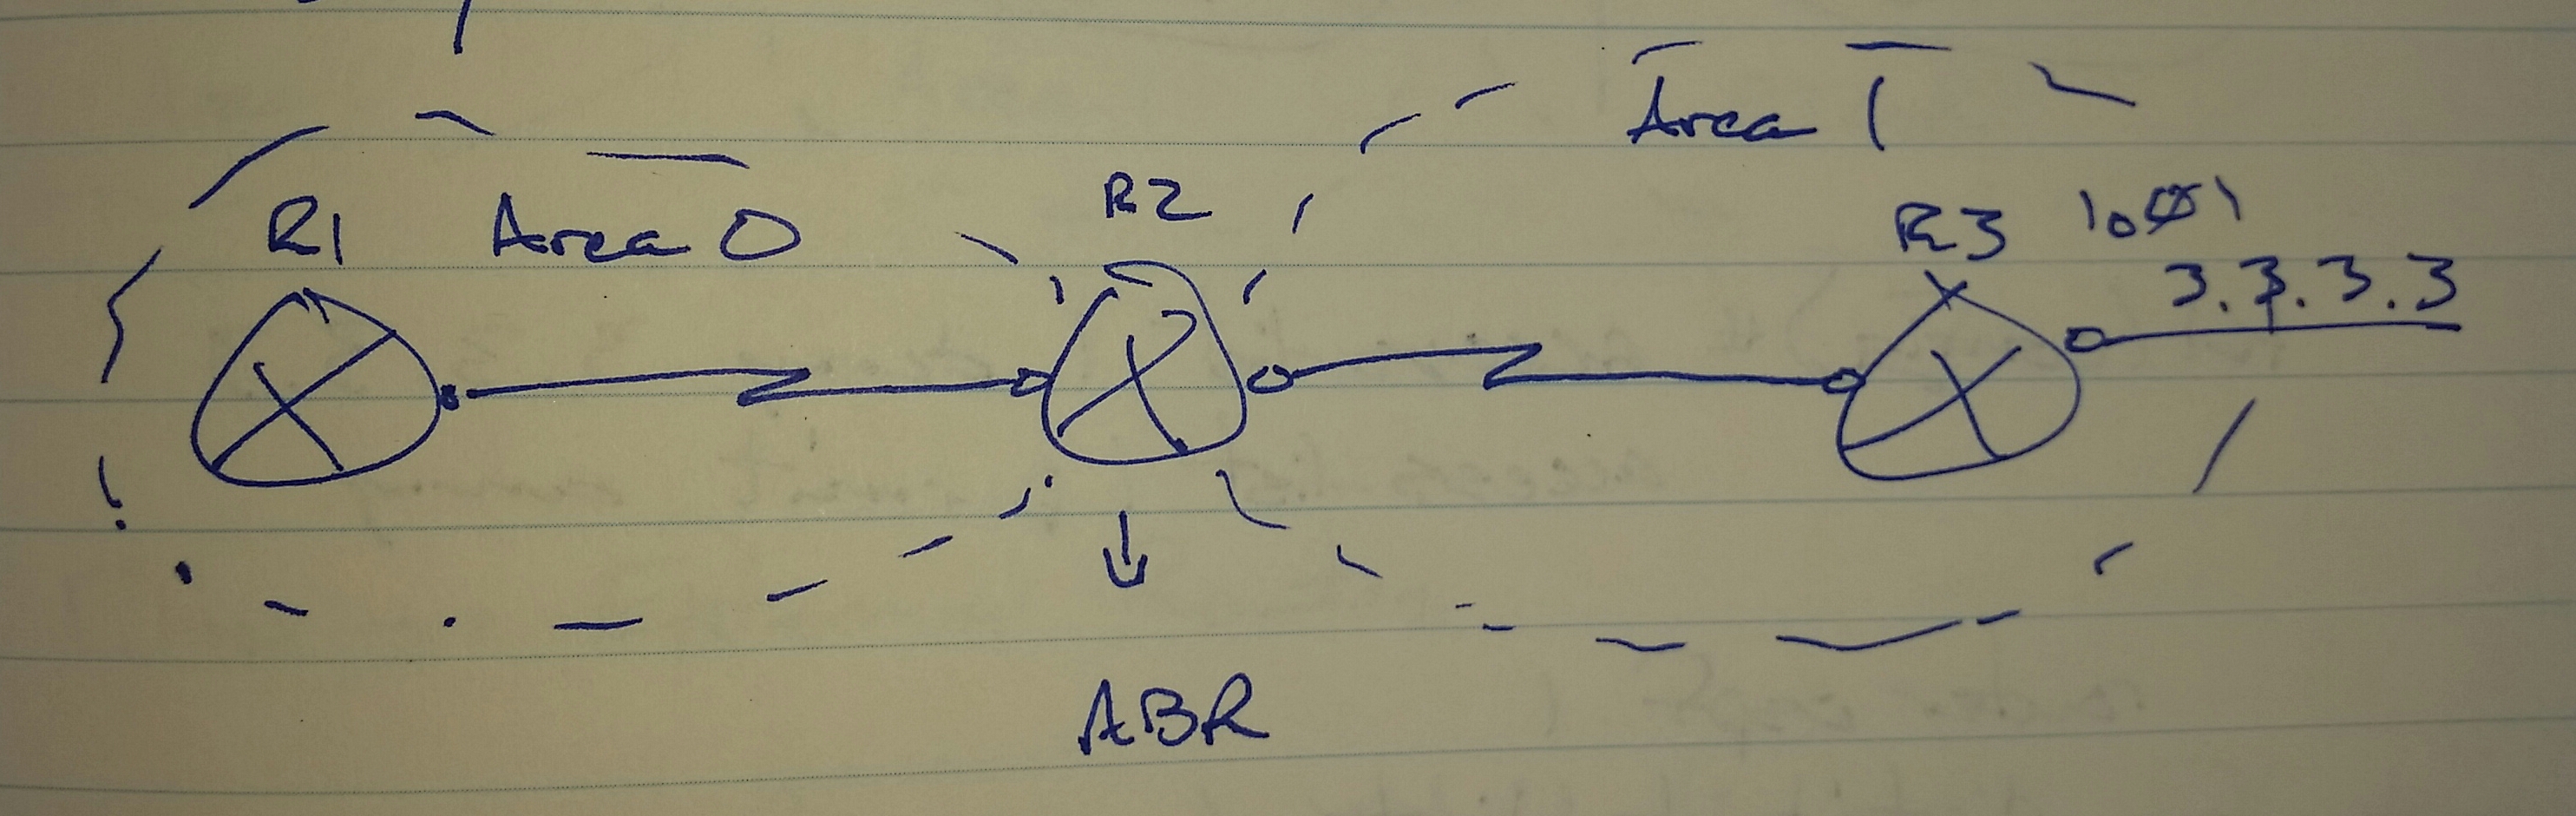 Area 1
R1 Area 0
R2
R3 lo01
3.3.3.3
ABR